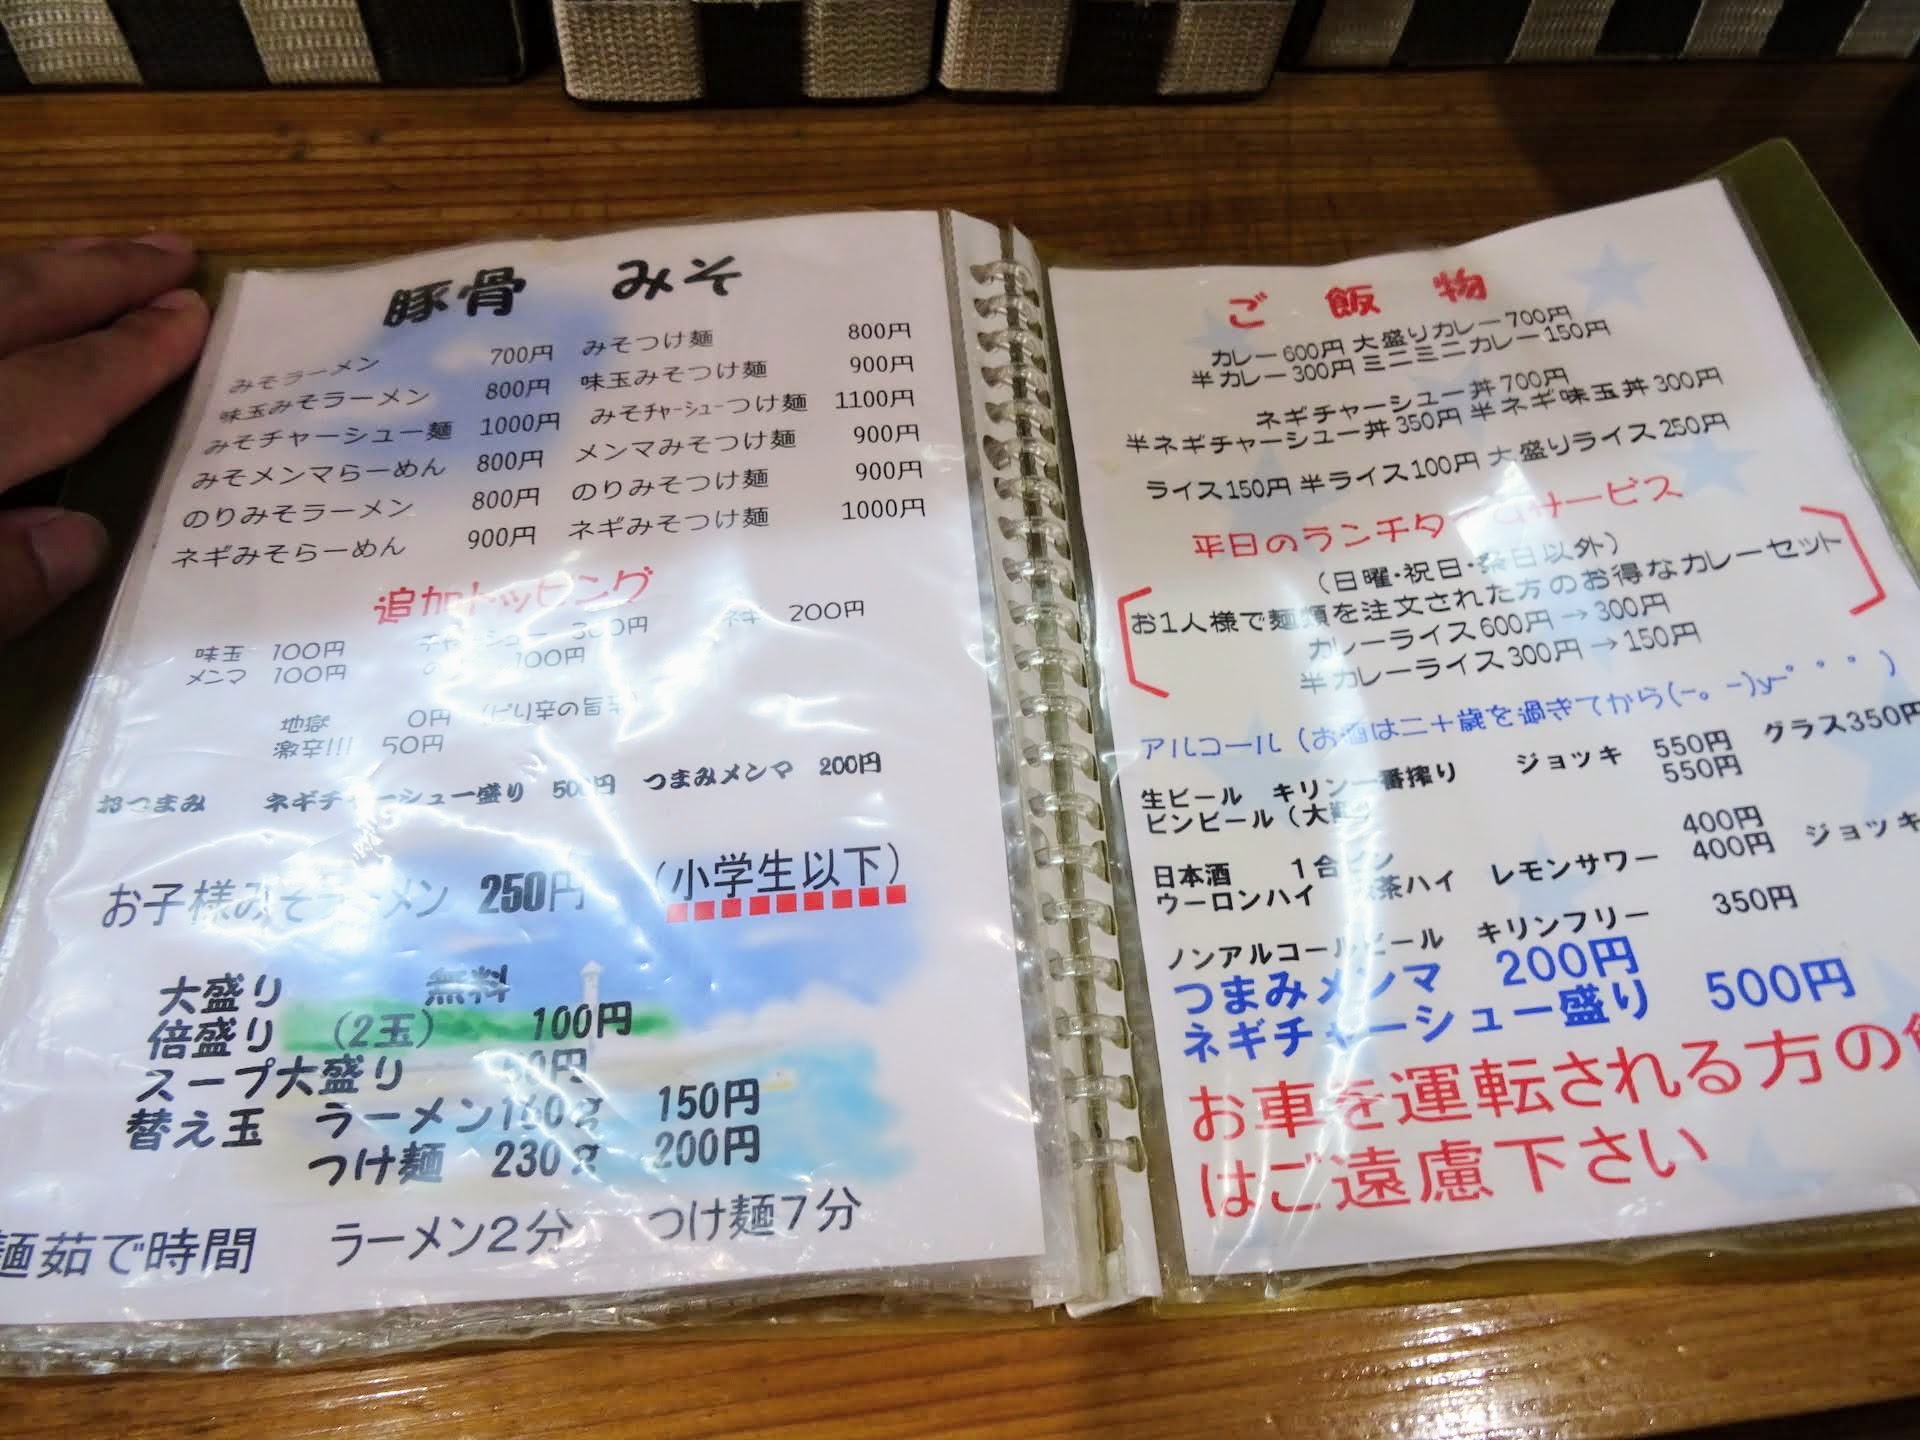 豚骨 みそ
みそラーメン 700円 みそつけ麺 800円
味玉みそラーメン 800円 味玉みそつけ麺 900円
みそチャーシュー麺 1000円 みそチャーシューつけ麺 1100円
みそメンマらーめん 800円 メンマみそつけ麺 900円
のりみそラーメン 800円 のりみそつけ麺 900円
ネギみそらーめん 900円 ネギみそつけ麺 1000円
追加トッピング
味玉 100円 チャーシュー 300円 ネギ 200円
メンマ 100円 100円
地獄 0円 (ピり辛の旨辛)
激辛!!! 50円
おつまみ ネギチャーシュー盛り 500円 つまみメンマ 200円
お子様みそラーメン 250円 (小学生以下)
大盛り 無料
倍盛り (2玉) 100円
スープ大盛り 50円
替え玉 ラーメン160g 150円
つけ麺 230g 200円
麺茹で時間 ラーメン2分 つけ麺7分
ご飯物
カレー600円 大盛りカレー700円
半カレー300円 ミニミニカレー150円
ネギチャーシュー丼700円
半ネギチャーシュー丼350円 半ネギ味玉丼300円
ライス150円 半ライス100円 大盛りライス250円
平日のランチタイムサービス
(日曜・祝日・祭日以外)
お1人様で麺類を注文された方のお得なカレーセット
カレーライス600円→300円
半カレーライス300円→150円
アルコール(お酒は二十歳を過ぎてから(-。-)y-゜゜゜)
生ビール キリン一番搾り ジョッキ 550円 グラス350円
ビンビール(大瓶) 550円
日本酒 1合 400円
ウーロンハイ 茶ハイ レモンサワー 400円 ジョッキ
ノンアルコールビール キリンフリー 350円
つまみメンマ 200円
ネギチャーシュー盛り 500円
お車を運転される方の
はご遠慮下さい